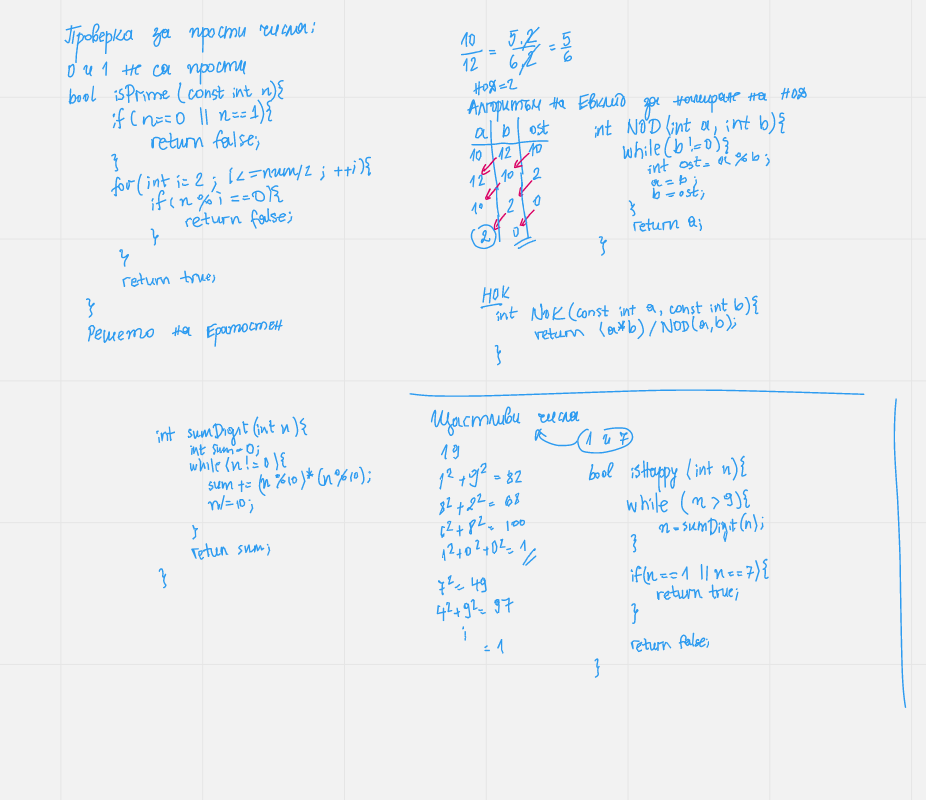 Проверка за прости числа:
0 и 1 не са прости
bool isPrime (const int n){
if (n==0 || n==1){
return false;
}
for(int i=2; i<=num/2; ++i){
if(n%i==0){
return false;
}
}
return true;
}
Решето на Ератостен
10/12 = 5.2/6.2 = 5/6
НОД=2
Алгоритъм на Евклид за намиране на НОД
a | b | ost
10 | 12 | 10
12 | 10 | 2
10 | 2 | 0
2 | 0
int NOD(int a, int b){
while(b!=0){
int ost=a%b;
a=b;
b=ost;
}
return a;
}
НОК
int NoK(const int a, const int b){
return (a*b)/NOD(a,b);
}
int sumDigit(int n){
int sum=0;
while(n!=0){
sum += (n%10)*(n%10);
n/=10;
}
retun sum;
}
Щастливи числа
1 и 7
19
1²+9²=82
8²+2²=68
6²+8²=100
1²+0²+0²=1
7²=49
4²+9²=97
=1
bool isHappy (int n){
while (n>9){
n=sumDigit(n);
}
if(n==1 || n==7){
return true;
}
return false;
}